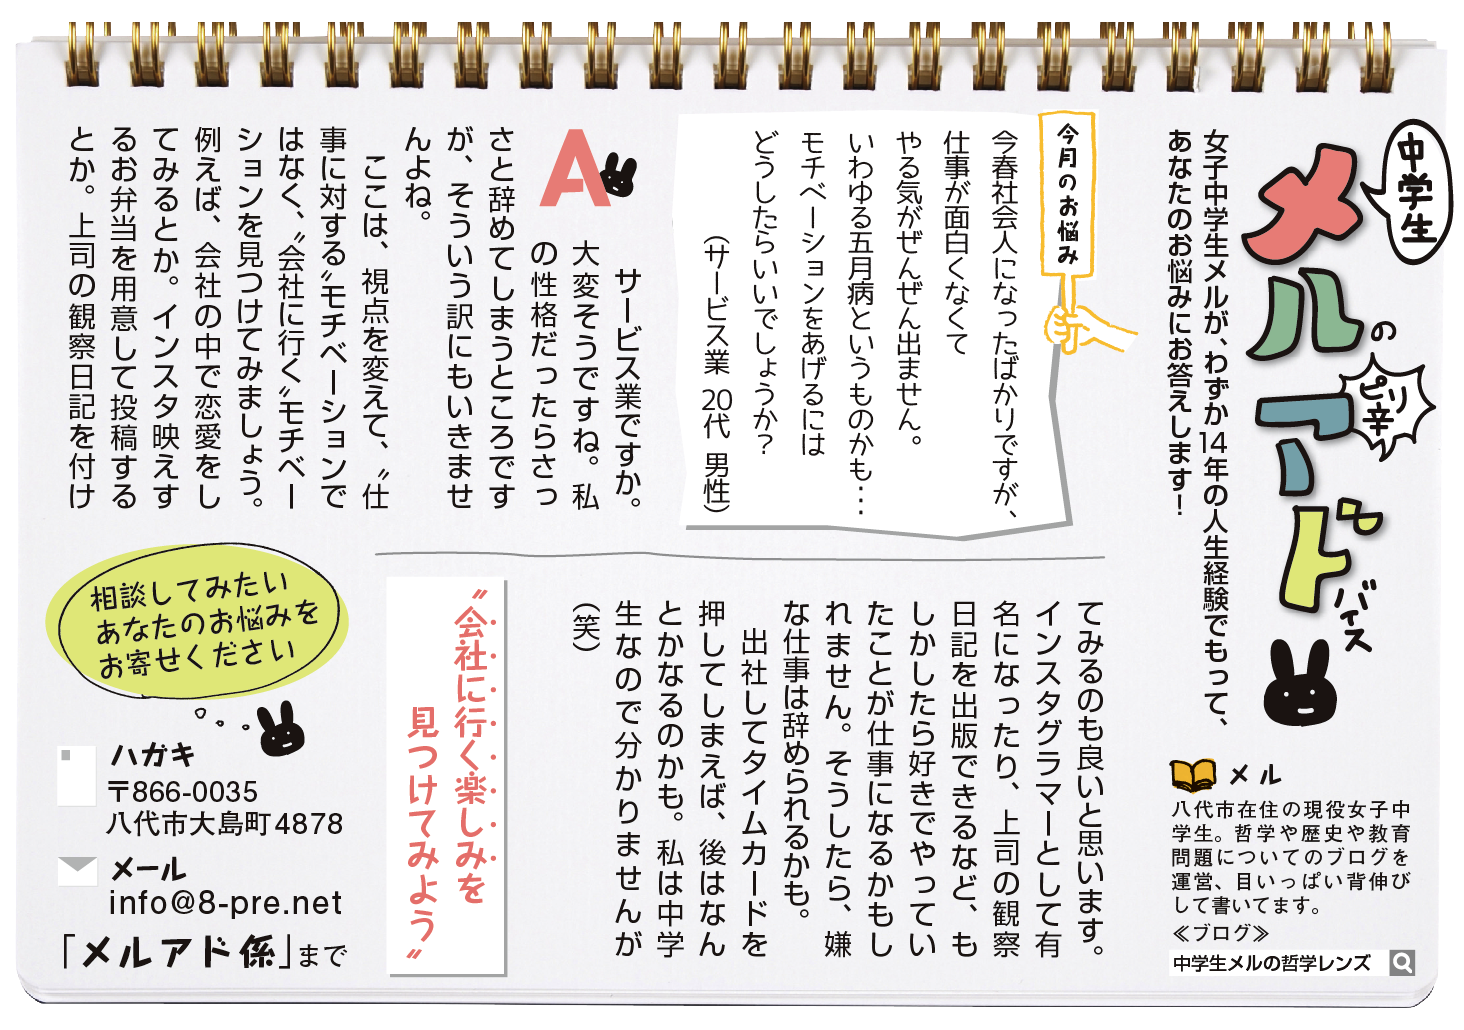 中学生
メルの
ピリ辛
アドバイス
女子中学生メルが、わずか14年の人生経験でもって、
あなたのお悩みにお答えします！
今月のお悩み
今春社会人になったばかりですが、
仕事が面白くなくて
やる気がぜんぜん出ません。
いわゆる五月病というものかも…
モチベーションをあげるには
どうしたらいいでしょうか？
（サービス業 20代 男性）
A
サービス業ですか。
大変そうですね。私
の性格だったらさっ
さと辞めてしまうところです
が、そういう訳にもいきませ
んよね。
ここは、視点を変えて、〝仕
事に対する〟モチベーションで
はなく、〝会社に行く〟モチベー
ションを見つけてみましょう。
例えば、会社の中で恋愛をし
てみるとか。インスタ映えす
るお弁当を用意して投稿する
とか。上司の観察日記を付け
てみるのも良いと思います。
インスタグラマーとして有
名になったり、上司の観察
日記を出版できるなど、も
しかしたら好きでやってい
たことが仕事になるかもし
れません。そうしたら、嫌
な仕事は辞められるかも。
出社してタイムカードを
押してしまえば、後はなん
とかなるのかも。私は中学
生なので分かりませんが
（笑）
〝会社に行く楽しみを
見つけてみよう〟
メル
八代市在住の現役女子中
学生。哲学や歴史や教育
問題についてのブログを
運営、目いっぱい背伸び
して書いてます。
≪ブログ≫
中学生メルの哲学レンズ
相談してみたい
あなたのお悩みを
お寄せください
ハガキ
〒866-0035
八代市大島町4878
メール
info@8-pre.net
「メルアド係」まで